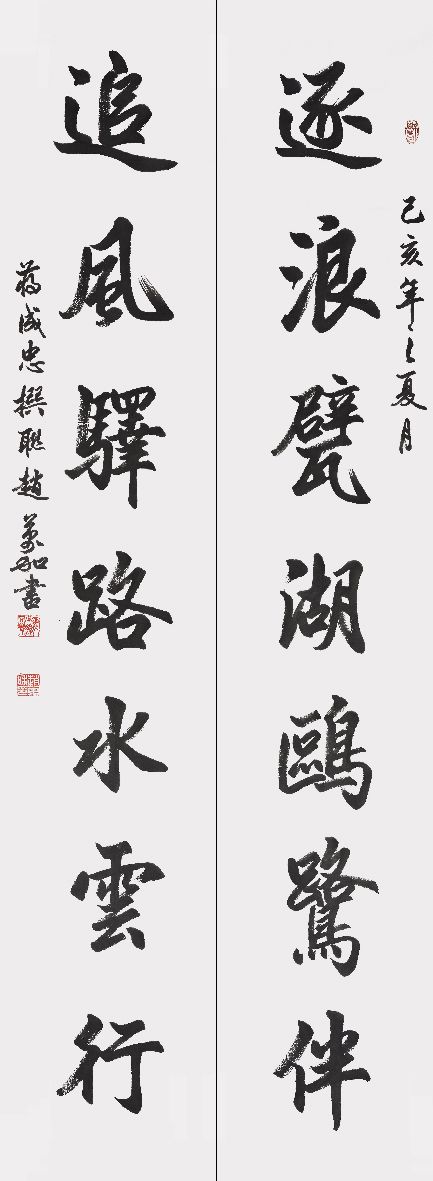 己亥年之夏月
逐浪甓湖鷗鷺伴
追風驛路水雲行
蔣成忠撰聯趙萬如書